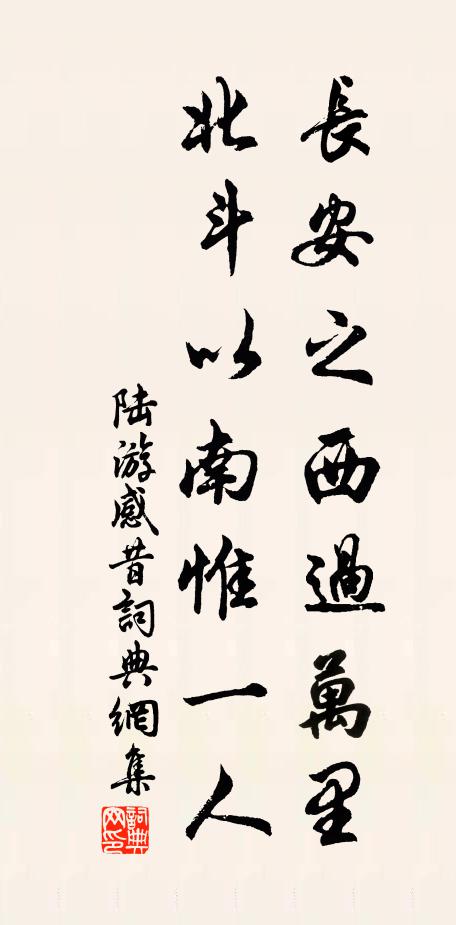 長安之西過萬里
北斗以南惟一人
陆游感昔詞典網集
詞典網印